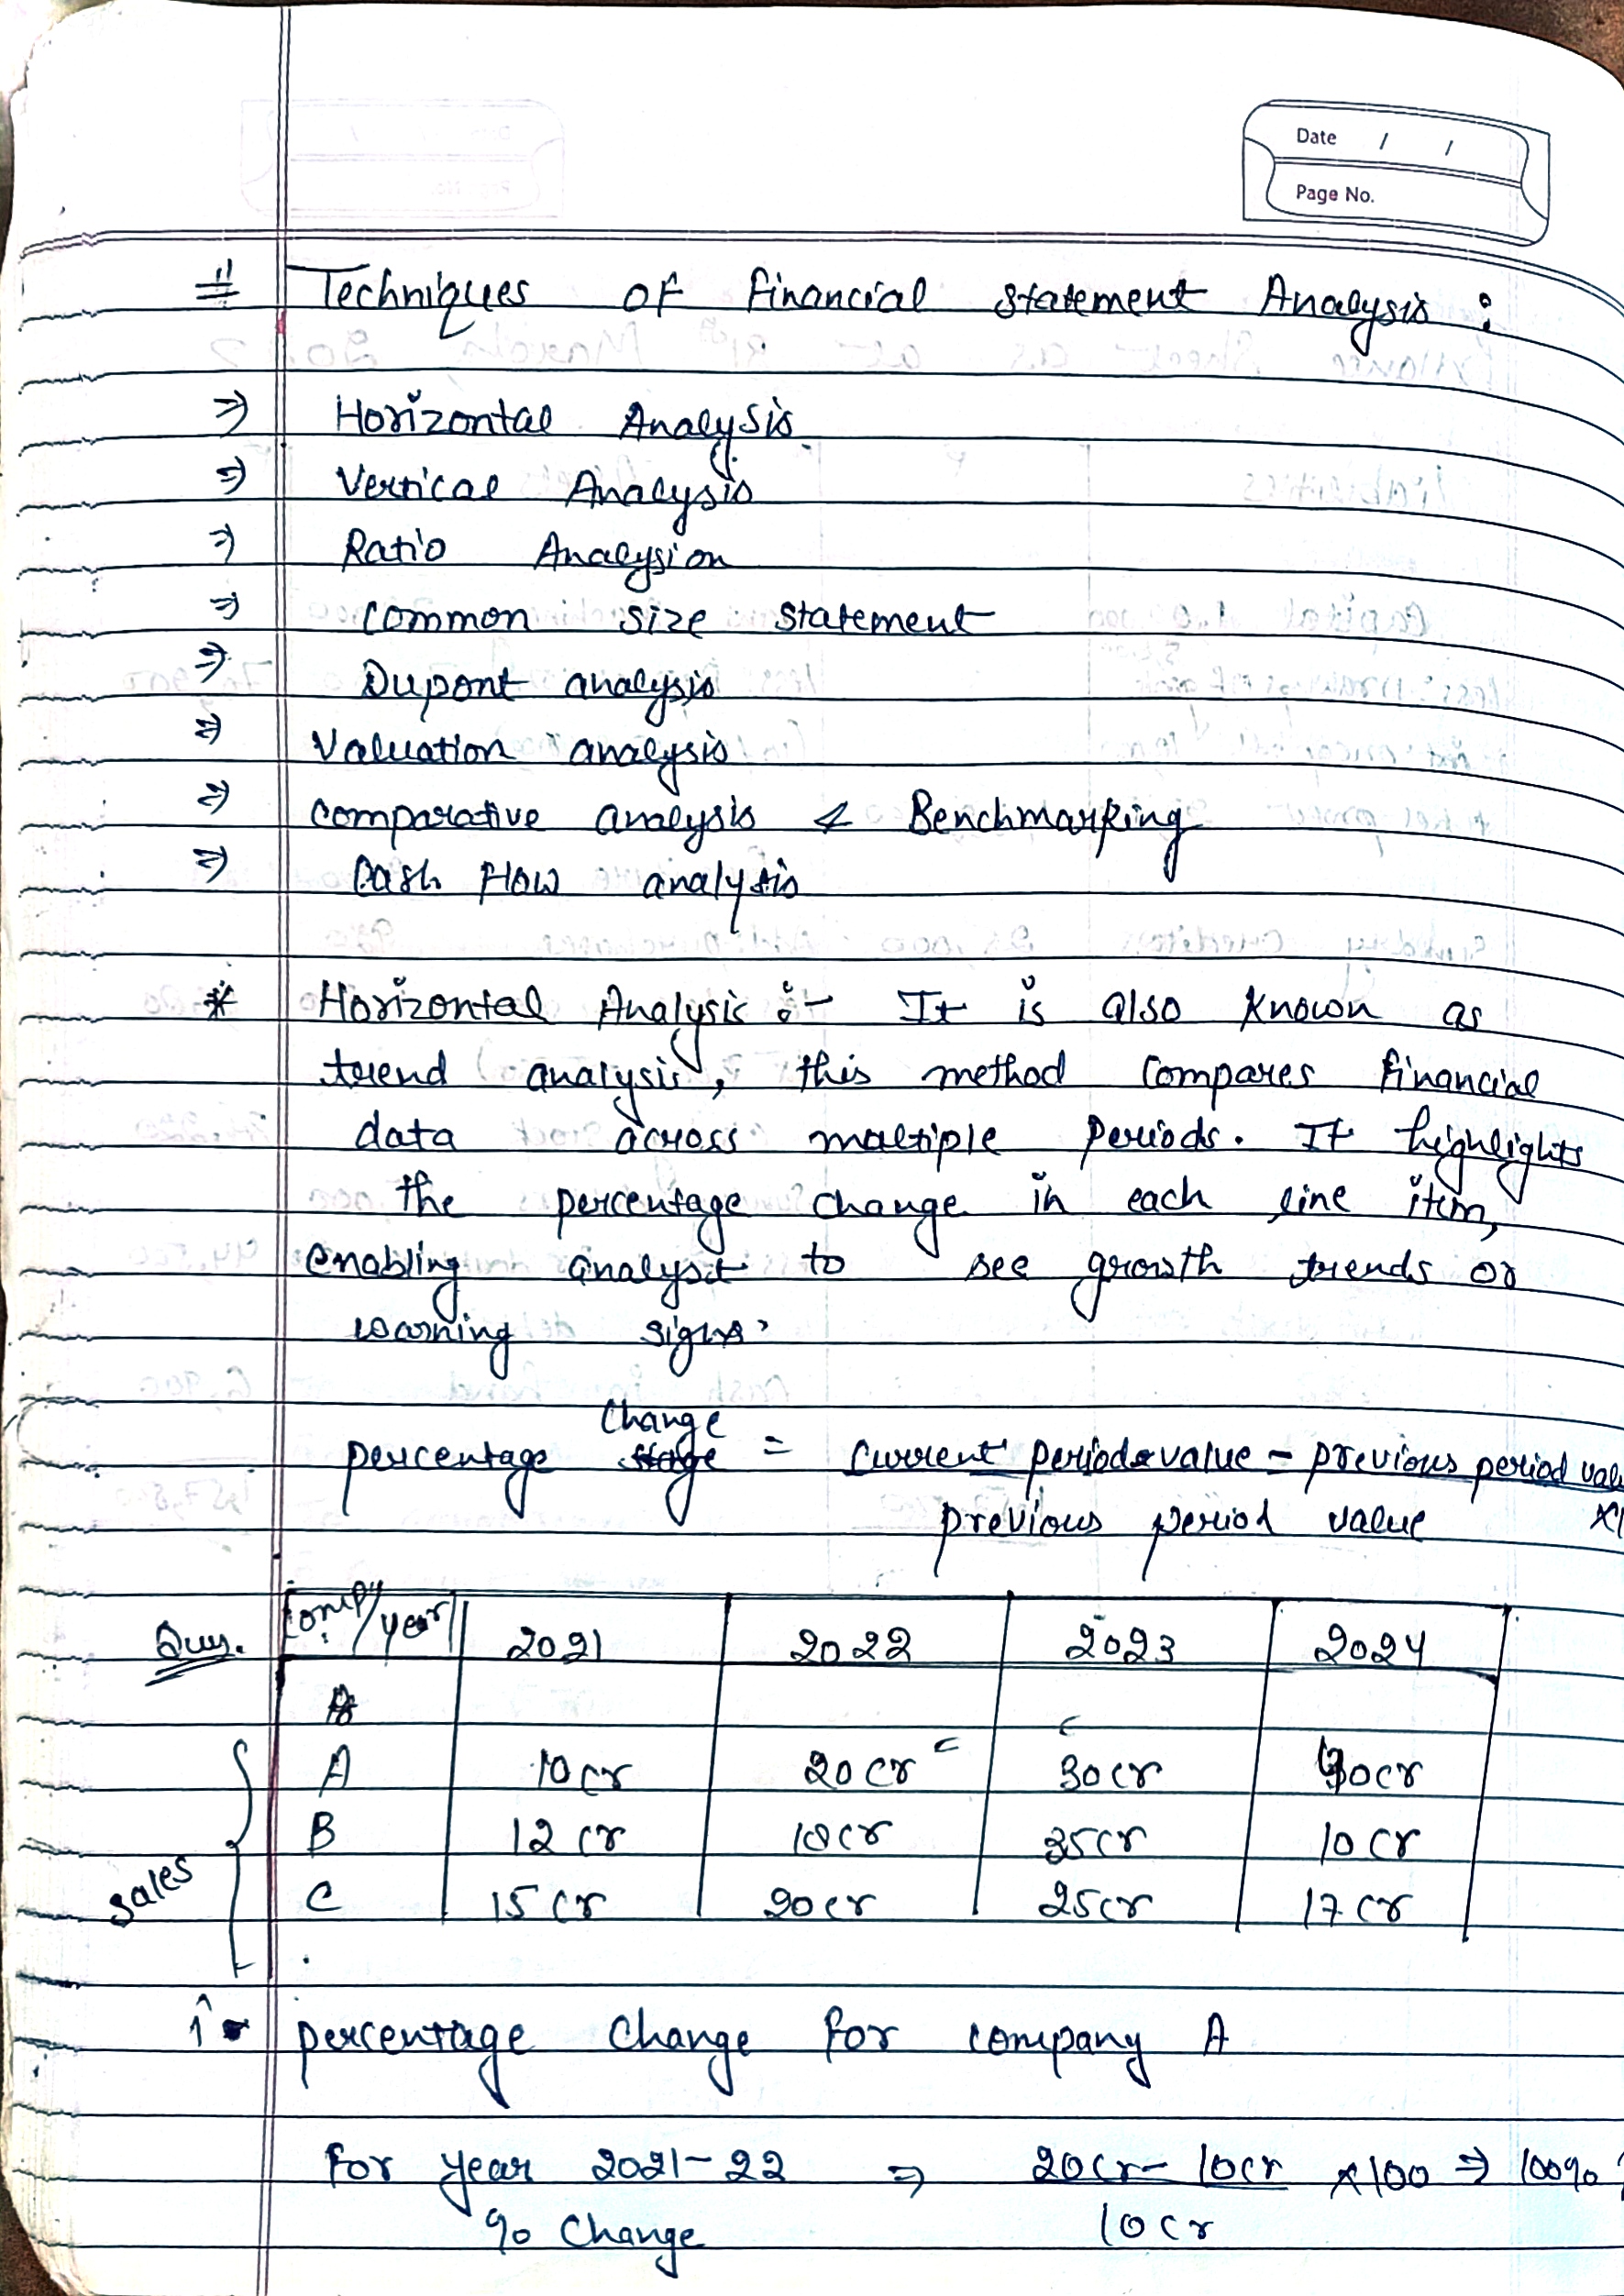 Date / /
Page No.
# Techniques of financial statement Analysis :
⇒ Horizontal Analysis
⇒ Vertical Analysis
⇒ Ratio Analysion
⇒ common size statement
⇒ Dupont analysis
⇒ Valuation analysis
⇒ comparative analysis & Benchmarking
⇒ Cash Flow analysis
* Horizontal Analysis :- It is also known as
trend analysis, this method compares financial
data across multiple periods. It highlights
the percentage change in each line item,
enabling analysit to see growth trends or
warning signs.
change
percentage = current period value - previous period valu
previous period value ×1
Ques. comp/year 2021 2022 2023 2024
A 10cr 20cr 30cr
B 12cr 18cr 35cr 10cr
sales C 15cr 20cr 25cr 17cr
i percentage change for company A
for year 2021-22 ⇒ 20cr- 10cr ×100 ⇒ 100%
% change 10cr